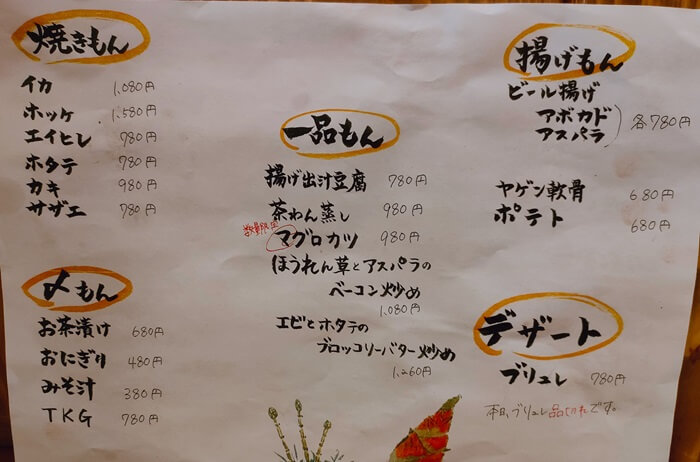 焼きもん
イカ 1,080円
ホッケ 1,580円
エイヒレ 780円
ホタテ 780円
カキ 980円
サザエ 780円
〆もん
お茶漬け 680円
おにぎり 480円
みそ汁 380円
TKG 780円
一品もん
揚げ出汁豆腐 780円
茶わん蒸し 980円
数量限定
マグロカツ 980円
ほうれん草とアスパラの
ベーコン炒め
1,080円
エビとホタテの
ブロッコリーバター炒め
1,260円
揚げもん
ビール揚げ
アボカド
アスパラ
各780円
ヤゲン軟骨 680円
ポテト 680円
デザート
ブリュレ 780円
本日、ブリュレ品切れです。